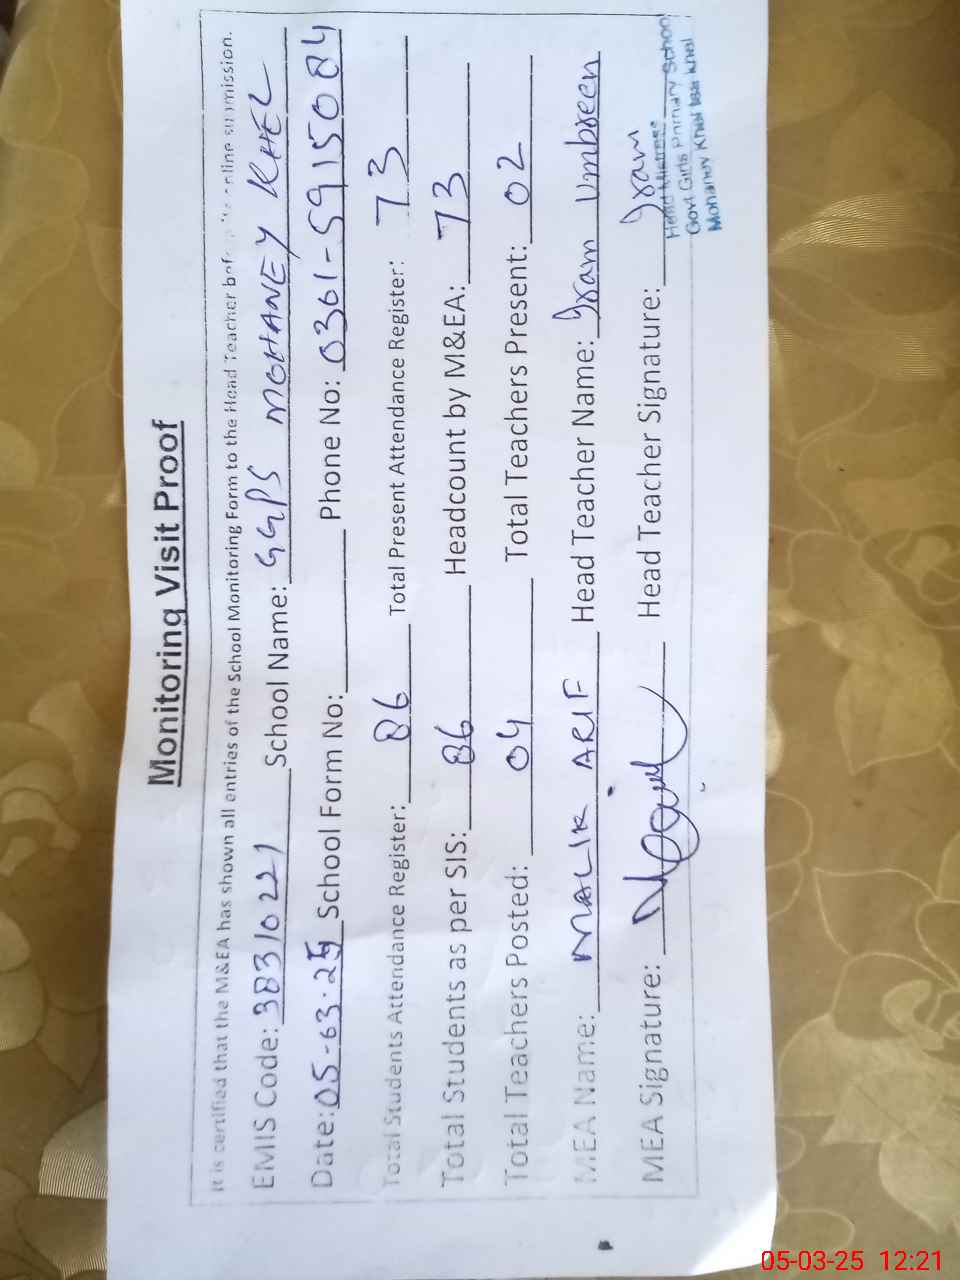 Monitoring Visit Proof
It is certified that the M&EA has shown all entries of the School Monitoring Form to the Head Teacher before online submission.
EMIS Code: 38310221 School Name: GGPS MOHANEY KHEL
Date: 05-03-25 School Form No: Phone No: 0301-5915084
Total Students Attendance Register: 86 Total Present Attendance Register: 73
Total Students as per SIS: 86 Headcount by M&EA: 73
Total Teachers Posted: 04 Total Teachers Present: 02
MEA Name: MALIK ARIF Head Teacher Name: Iram Umbreen
MEA Signature: Head Teacher Signature: Iram
Head Mistress
Govt Girls Primary School
Khel
05-03-25 12:21